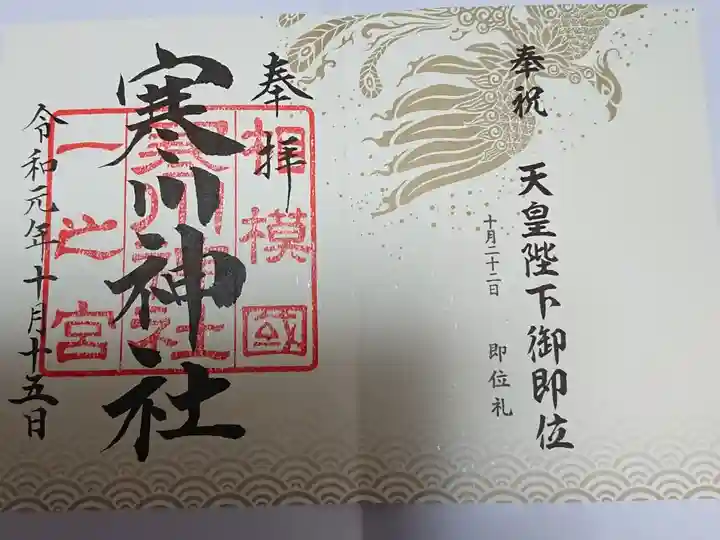 奉祝
天皇陛下御即位
十月二十二日 即位礼
奉拝
相模國
寒川神社
寒川神社
一之宮
令和元年十月十五日